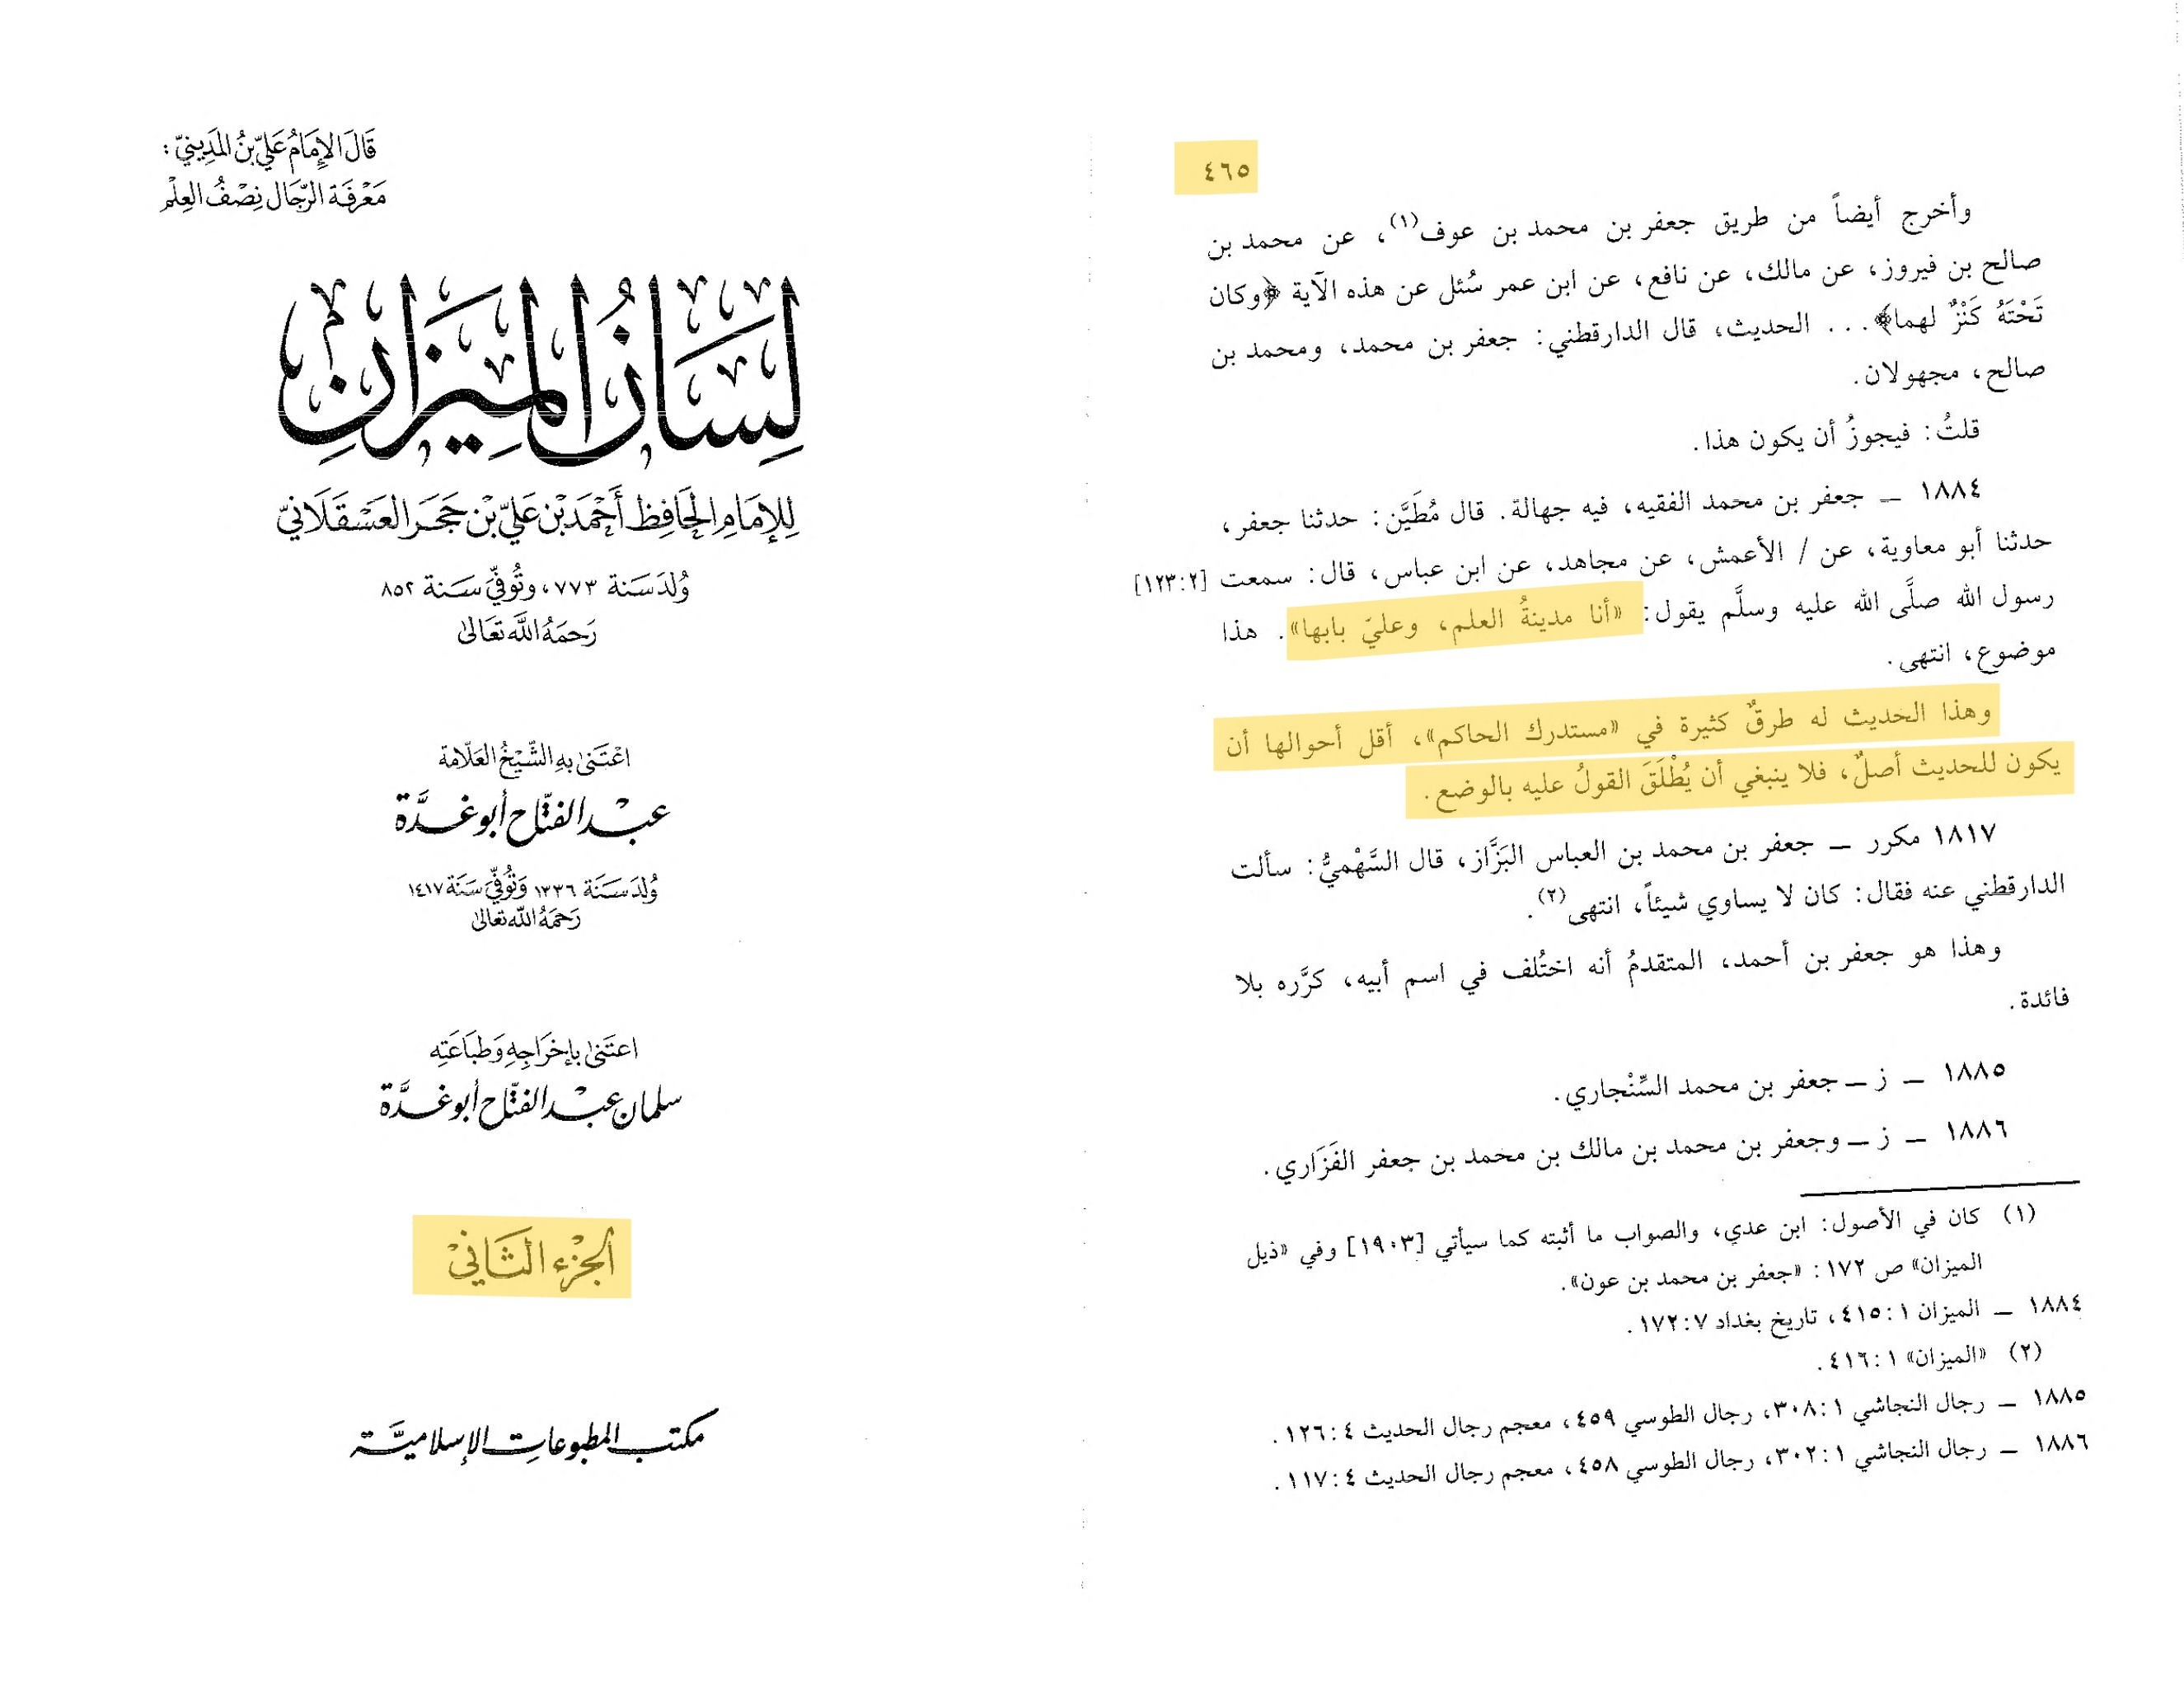 ٤٦٥
وأخرج أيضاً من طريق جعفر بن محمد بن عوف(١)، عن محمد بن
صالح بن فيروز، عن مالك، عن نافع، عن ابن عمر سُئل عن هذه الآية ﴿وكان
تَحْتَهُ كَنْزٌ لهما﴾... الحديث، قال الدارقطني: جعفر بن محمد، ومحمد بن
صالح، مجهولان.
قلتُ: فيجوزُ أن يكون هذا.
١٨٨٤ — جعفر بن محمد الفقيه، فيه جهالة. قال مُطَيَّن: حدثنا جعفر،
حدثنا أبو معاوية، عن / الأعمش، عن مجاهد، عن ابن عباس، قال: سمعت [١٢٣:٢]
رسول الله صلَّى الله عليه وسلَّم يقول: «أنا مدينةُ العلم، وعليّ بابها». هذا
موضوع، انتهى.
وهذا الحديث له طرقٌ كثيرة في «مستدرك الحاكم»، أقل أحوالها أن
يكون للحديث أصلٌ، فلا ينبغي أن يُطْلَقَ القولُ عليه بالوضع.
١٨١٧ مكرر — جعفر بن محمد بن العباس البَزَّاز، قال السَّهْميُّ: سألت
الدارقطني عنه فقال: كان لا يساوي شيئاً، انتهى(٢).
وهذا هو جعفر بن أحمد، المتقدمُ أنه اختُلف في اسم أبيه، كرَّره بلا
فائدة.
١٨٨٥ — ز — جعفر بن محمد السِّنْجاري.
١٨٨٦ — ز — وجعفر بن محمد بن مالك بن محمد بن جعفر الفَزَاري.
(١) كان في الأصول: ابن عدي، والصواب ما أثبته كما سيأتي [١٩٠٣] وفي «ذيل
الميزان» ص ١٧٢: «جعفر بن محمد بن عون».
١٨٨٤ — الميزان ١:٤١٥، تاريخ بغداد ٧:١٧٢.
(٢) «الميزان» ١:٤١٦.
١٨٨٥ — رجال النجاشي ١:٣٠٨، رجال الطوسي ٤٥٩، معجم رجال الحديث ٤:١٢٦.
١٨٨٦ — رجال النجاشي ١:٣٠٢، رجال الطوسي ٤٥٨، معجم رجال الحديث ٤:١١٧.
قَالَ الإِمَامُ عَلِيّ بنُ المَدِينِيّ:
مَعْرِفَة الرّجَال نِصْفُ العِلْم
لِسَانُ المِيزَانِ
لِلإِمَامِ الحَافِظِ أَحْمَد بْن عَلِيّ بْن حَجَر العَسْقَلَانِيّ
وُلِدَ سَنة ٧٧٣، وتُوفِّيَ سَنة ٨٥٢
رَحِمَهُ اللَّه تَعَالىٰ
اعْتَنىٰ بِهِ الشَّيْخُ العَلّامَة
عَبْد الفتّاح أبو غدَّة
وُلِدَ سَنَة ١٣٣٦ وَتُوفِّيَ سَنَة ١٤١٧
رَحِمَهُ اللّه تعَالىٰ
اعتَنىٰ بإخْرَاجِهِ وَطبَاعَتِه
سلمان عَبْد الفتّاح أبو غدَّة
الجُزْء الثَّانِيْ
مكتب المطبوعات الإسلاميَّة